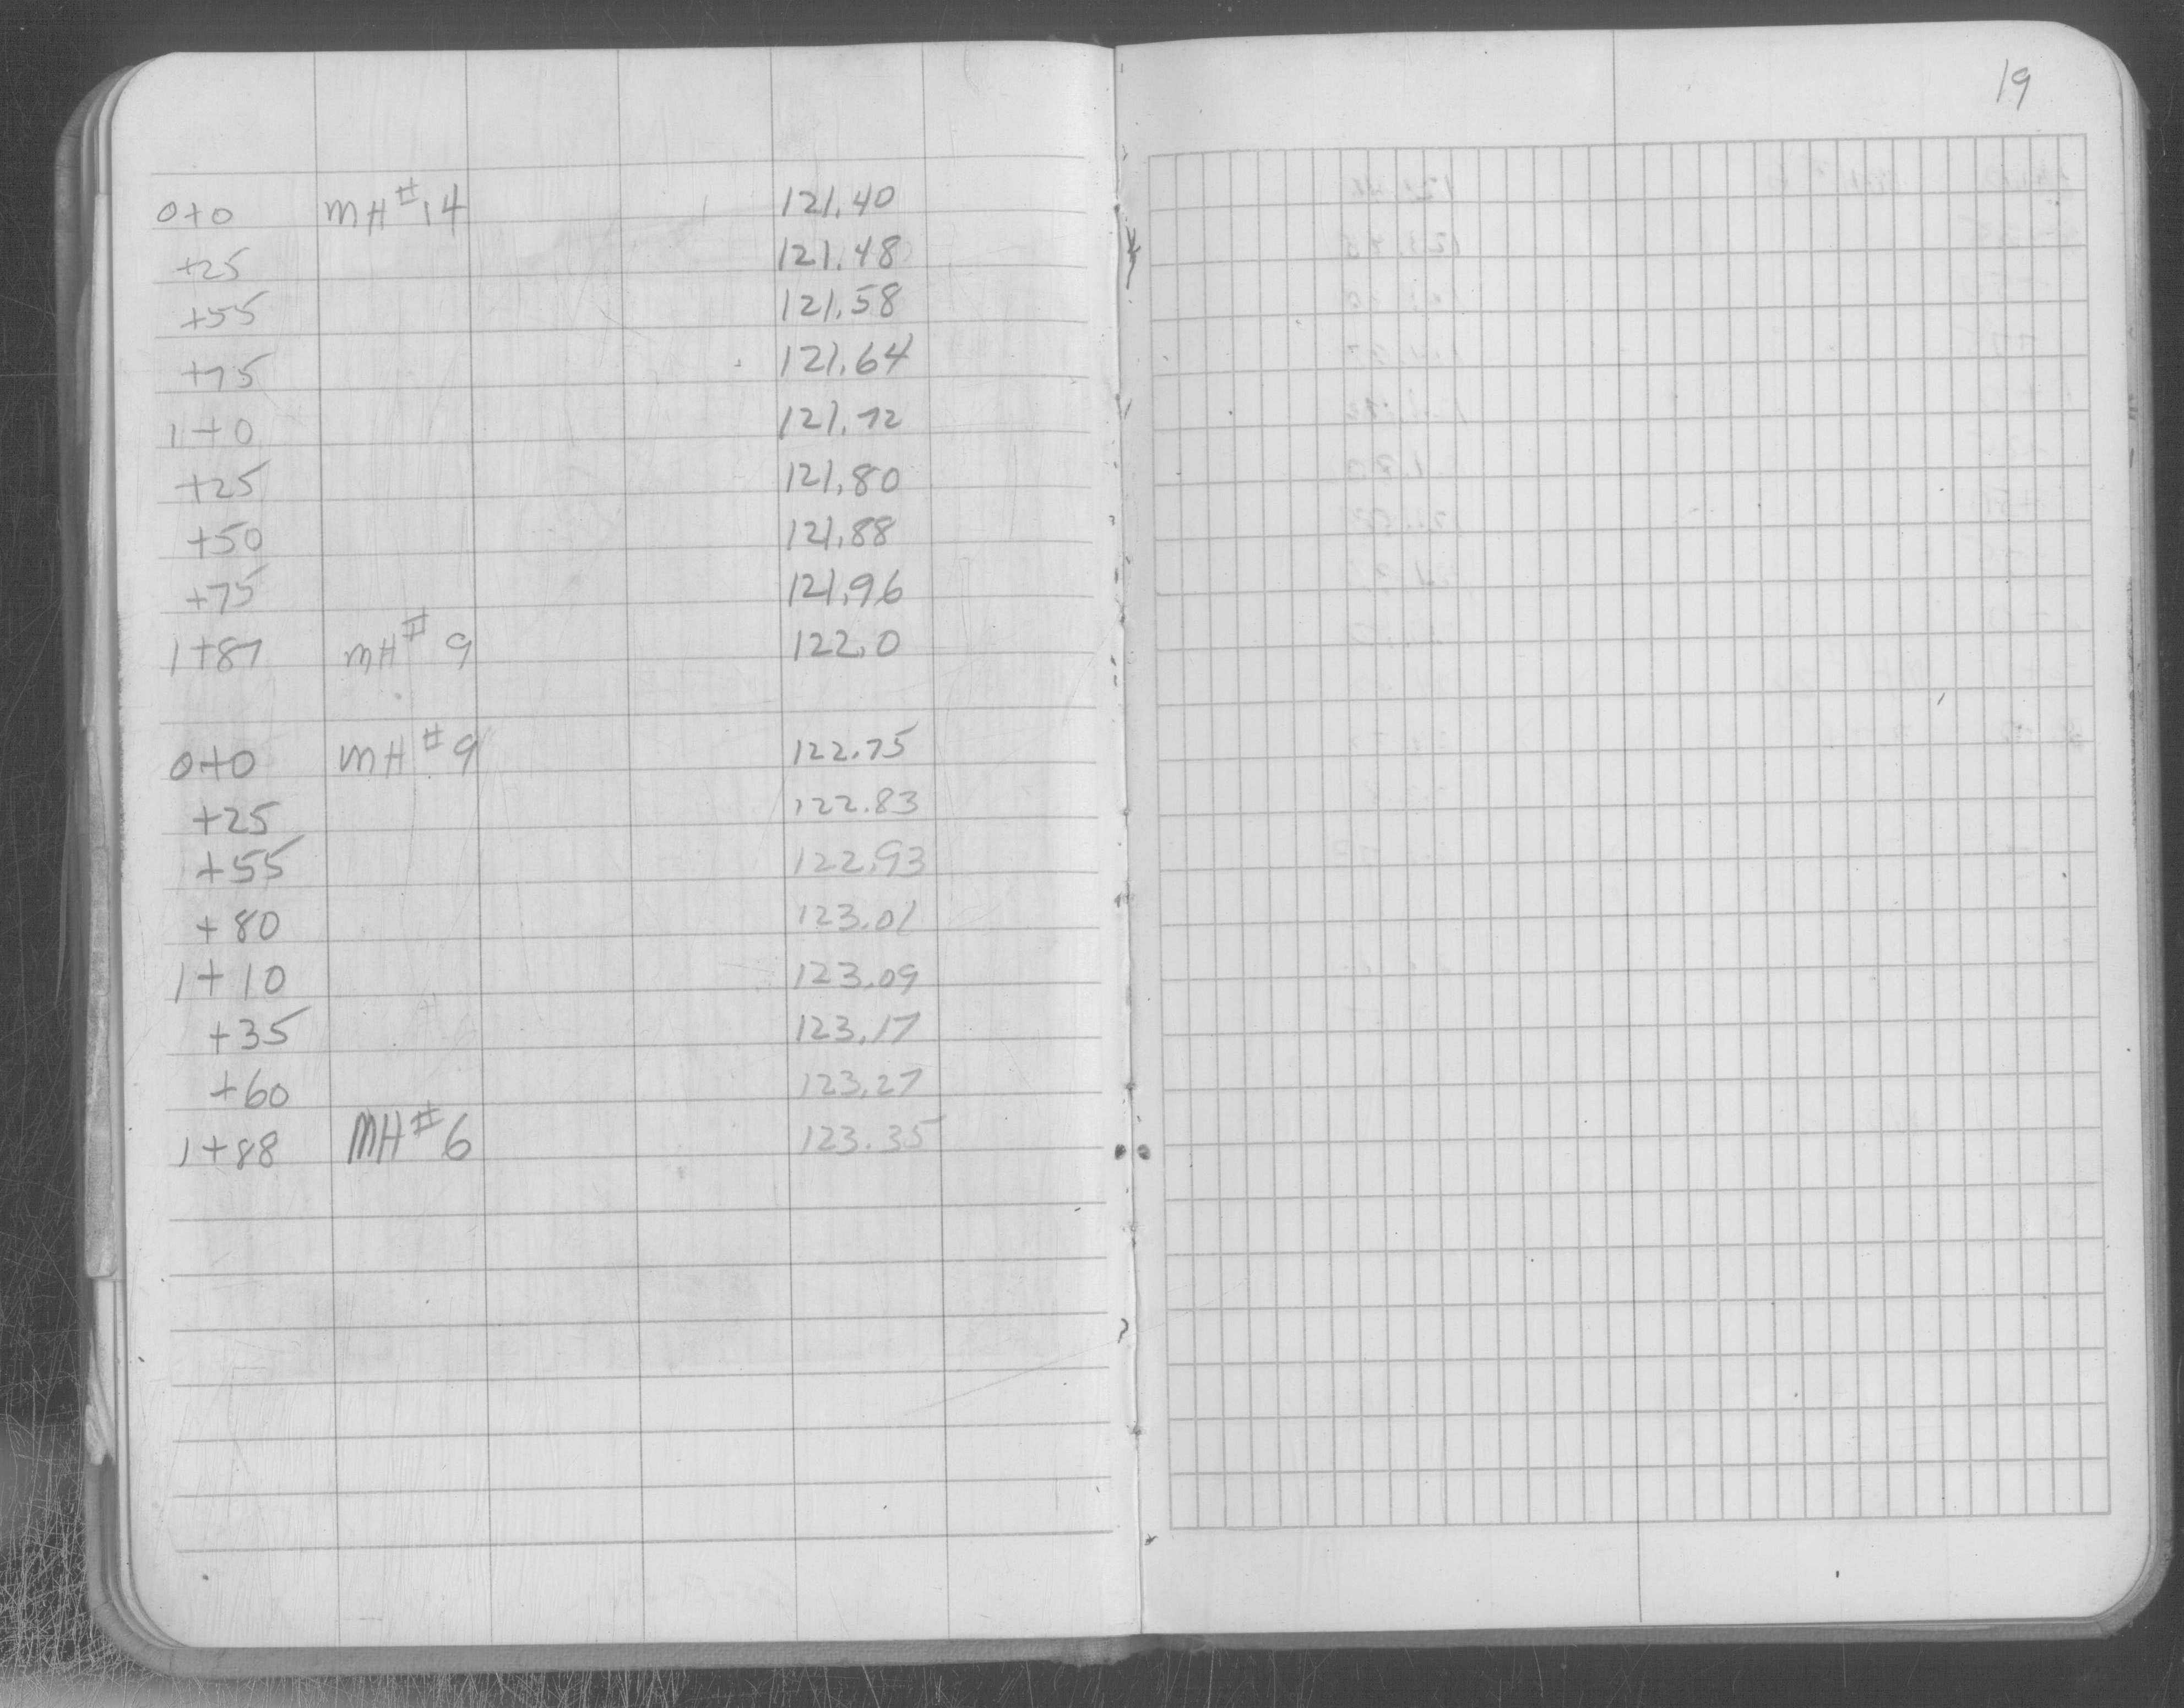 19
0+0 MH #14 121.40
+25 121.48
+55 121.58
+75 121.64
1+0 121.72
+25 121.80
+50 121.88
+75 121.96
1+87 MH # 9 122.0
0+0 MH #9 122.75
+25 122.83
+55 122.93
+80 123.01
1+10 123.09
+35 123.17
+60 123.27
1+88 MH #6 123.35